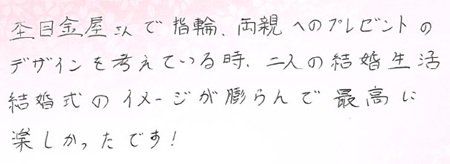 杢目金屋さんで指輪、両親へのプレゼントの
デザインを考えている時、二人の結婚生活
結婚式のイメージが膨らんで最高に
楽しかったです！